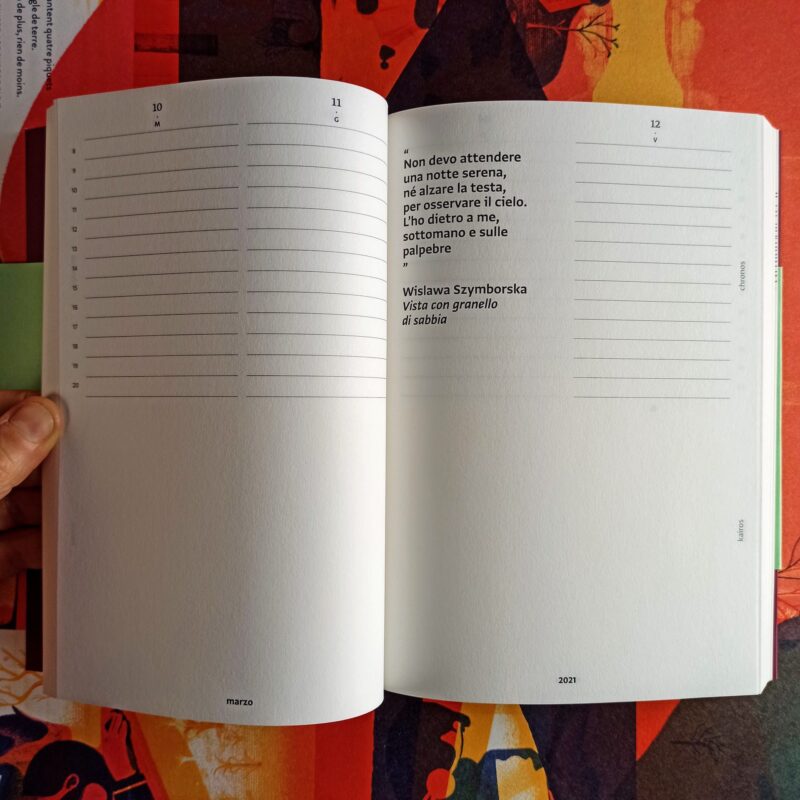 ontent quatre piquets
gle de terre.
de plus, rien de moins.
10
.
M
11
.
G
8
9
10
11
12
13
14
15
16
17
18
19
20
marzo
“
Non devo attendere
una notte serena,
né alzare la testa,
per osservare il cielo.
L'ho dietro a me,
sottomano e sulle
palpebre
”
Wislawa Szymborska
Vista con granello
di sabbia
12
.
V
chronos
kairos
2021